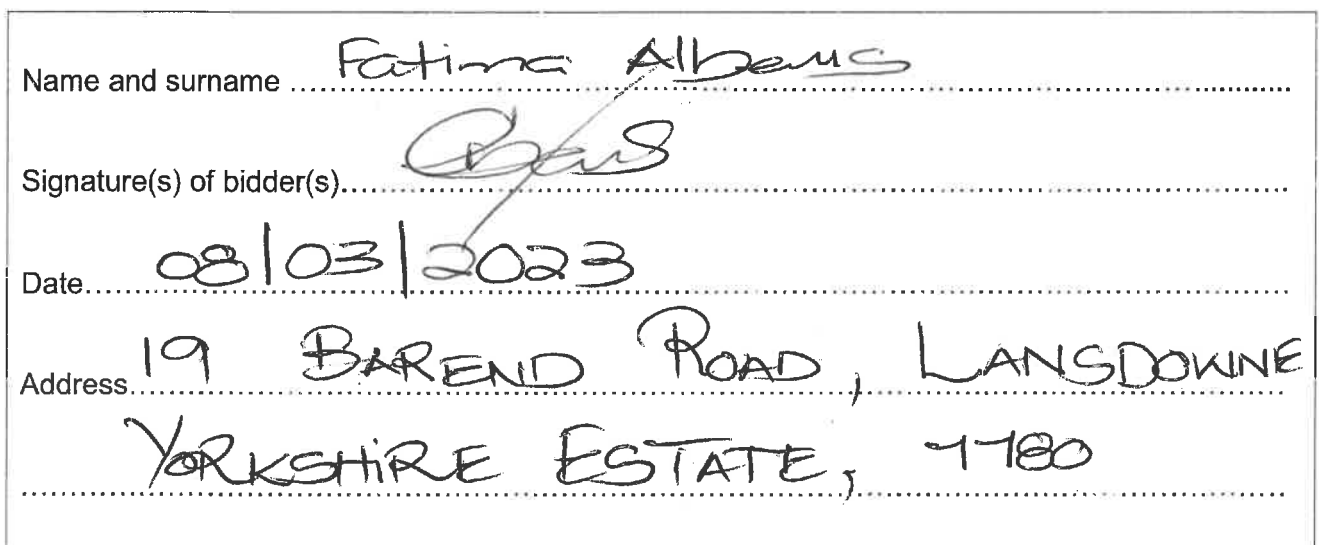 Name and surname Fatima Albens
Signature(s) of bidder(s)
Date 08/03/2023
Address 19 BAREND ROAD, LANSDOWNE
YORKSHIRE ESTATE, 7780